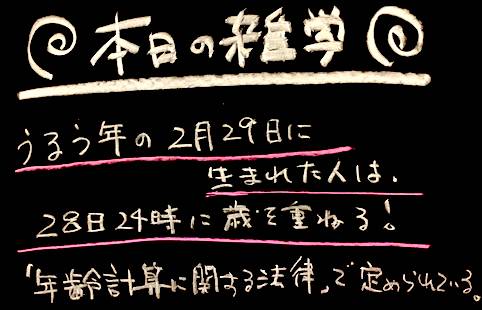 本日の雑学
うるう年の2月29日に
生まれた人は、
28日24時に歳を重ねる!
「年齢計算に関する法律」で定められている。